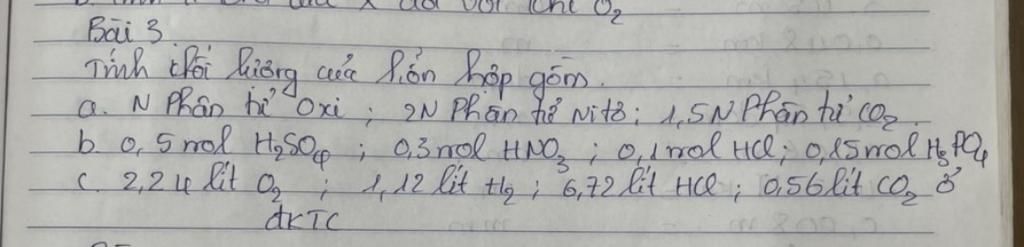 đối với khí O₂
Bài 3.
Tính khối lượng của hỗn hợp gồm.
a. N Phân tử Oxi ; 2N Phân tử Nitơ ; 1,5N Phân tử CO₂.
b. 0,5 mol H₂SO₄ ; 0,3 mol HNO₃ ; 0,1 mol HCl ; 0,15 mol H₃PO₄
c. 2,24 lít O₂ ; 1,12 lít H₂ ; 6,72 lít HCl ; 0,56 lít CO₂ ở
đKTC